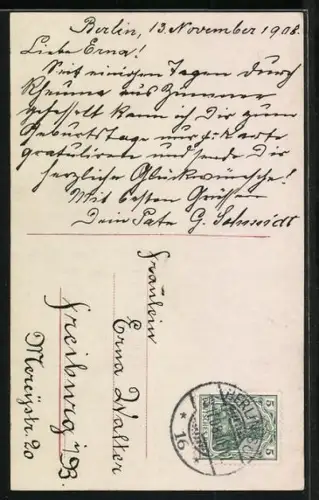 Berlin, 13. November 1908.
Liebe Erna!
Seit einigen Tagen durch
Rheuma ans Zimmer
gefesselt kann ich Dir zum
Geburtstage nur p. Karte
gratulieren und sende Dir
herzliche Glückwünsche!
Mit besten Grüssen
Dein Pate G. Schmidt
Fräulein
Erna Walter
Freiburg i/B.
Mercystr. 20
BERLIN
5 5
* 16 *